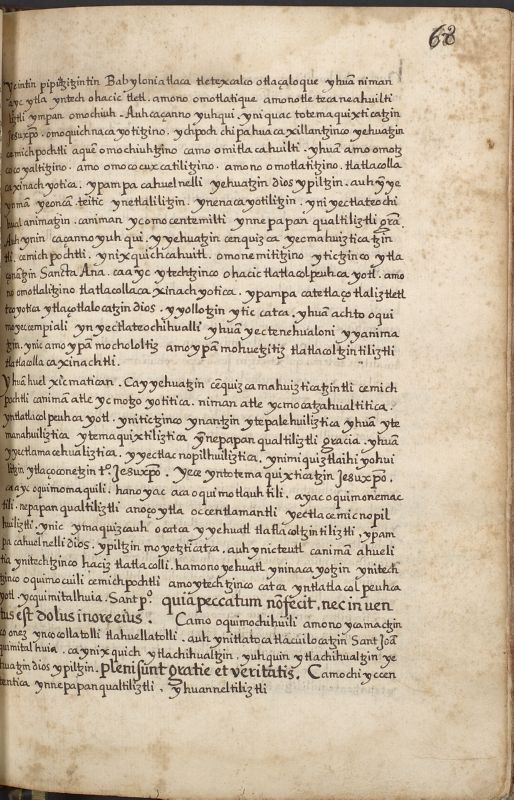 68
ycintin pipiltzitzintin Babylonia tlaca tletexcalco otlaçaloque yhuā niman
ayc ytla yntech ohacic tletl. amono omotlatique amonotle tecaneahuilti
liztli ympan omochiuh. Auh caçanno yuhqui. yniquac totemaquixticatzin
Jesuxpō. omoquichnacayotitzino. ychpoch chipahuacaxillantzinco yehuatzin
cemichpochtli aquē omochiuhtzino camo omitlacahuilti. yhuā amo omotz
cocoyaltitzino. amo omococuxcatilitzino. amono omotlatitzino. tlatlacolla
caxinachyotica. ypampa cahuelnelli yehuatzin dios ypiltzin. auh yye
yomā yeoncā teitic ynetlalilitzin. ynenacayotilitzin. yniyectlateochi
hualanimatzin. caniman ycomocentemilti ynnepapan qualtiliztli grā.
Auh ynin caçanno yuhqui. yyehuatzin cenquizca yecmahuizticatzin
tli cemichpochtli. ynixquichcahuitl. omonemititzino ytictzinco ytla
çonātzin Sancta Ana. caayc ytechtzinco ohacic tlatlacolpeuhcayotl. amo
no omotlalitzino tlatlacollacaxinachyotica. ypampa catetlaçotlaliztletl
teoyotica ytlaçotlalocatzin dios. yyollotzin ytic catca. yhuā achto oqui
moyectempiali yn yectlateochihualli yhuā yectenehualoni yyanima
tzin. ynic amo ypā mochololtiz amo ypā mohuetzitiz tlatlacoltzintiliztli
tlatlacollacaxinachtli.
Yhuā huel xicmatican. Ca yyehuatzin cēquizcamahuizticatzintli cemich
pochtli canimā atle ycmotzoyotitica. niman atle ycmocatzahualtitica.
yntlatlacolpeuhcayotl. ynitictzinco ynantzin ytepalehuiliztica yhuā yte
manahuiliztica ytemaquixtiliztica ynepapan qualtiliztli gracia. yhuā
yyectlamacehualiztica. yyectlacnopilhuiliztica. ynimiquiztlaihiyohui
litzin ytlaçoconetzin to. Jesuxpō. Yece yntotemaquixticatzin Jesuxpō.
caayc oquimomaquili. hanoyac aca oquimotlauhtili. ayac oquimonemac
tili. nepapan qualtiliztli anoço ytla occentlamantli yectlacemicnopil
huiliztli. ynic ymaquizcauh ocatca yyehuatl tlatlacoltzintiliztli. ypam
pa cahuelnelli dios. ypiltzin moyetzticatca. auh ynicteutl canimā ahueli
tia ynitechtzinco haciz tlatlacolli. hamono yehuatl yninacayotzin ynitech
tzinco oquimocuili cemichpochtli amo ytechtzinco catca yntlatlacolpeuhca
yotl. yequimitalhuia. Sant Po. quia peccatum nō fecit, nec inuen
tus est dolus in ore eius. Camo oquimochihuili amono ycamactzin
co onez yncocollatolli tlahuellatolli. auh ynitlatocatlacuilocatzin Sant Joā
quimitalhuia. caynixquich ytlachihualtzin. yuhquin ytlachihualtzin ye
huatzin dios ypiltzin. plenum gratie et veritatis. Ca mochi yccen
tentica ynnepapan qualtiliztli. yhuan neltiliztli